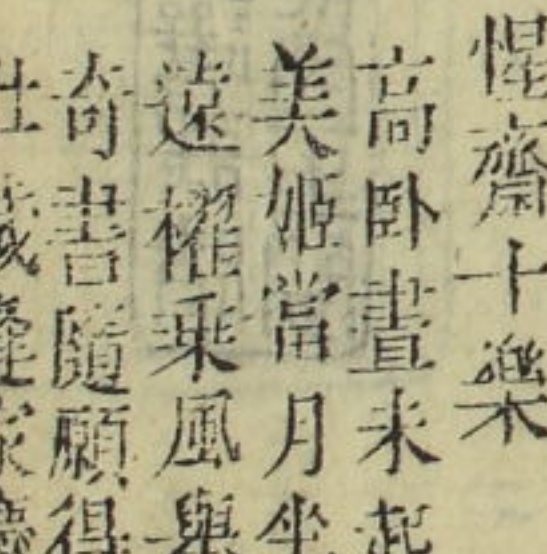 惺齋十樂
高臥晝未起
美姬當月坐
遠櫂乘風舉
奇書隨願得